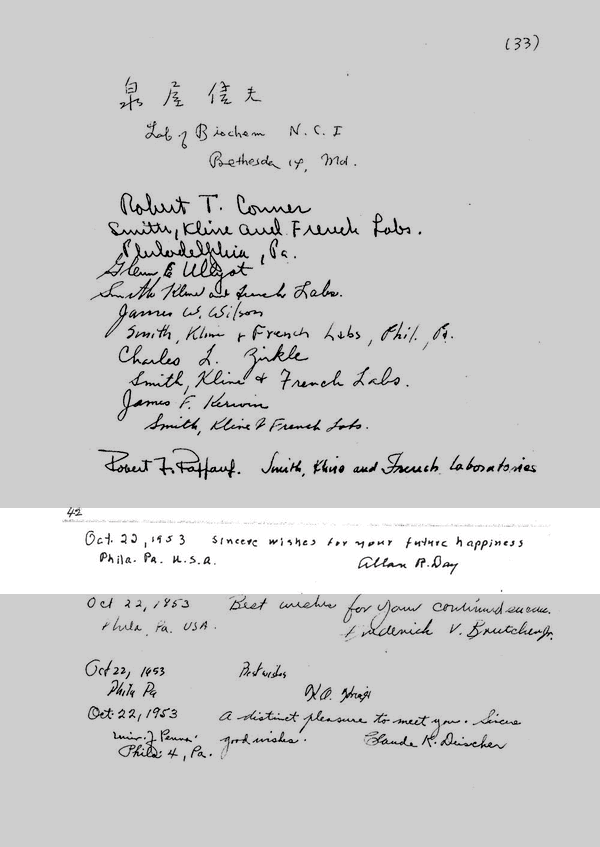 (33)
泉 屋 信 夫
Lab of Biochem N.C.I
Bethesda 14, Md.
Robert T. Conner
Smith, Kline and French Labs.
Philadelphia, Pa.
Glenn E. Ullyot
Smith Kline and French Labs.
James W. Wilson
Smith, Kline & French Labs, Phil., Pa.
Charles L. Zirkle
Smith, Kline & French Labs.
James F. Kerwin
Smith, Kline & French Labs.
Robert F. Raffauf. Smith, Kline and French Laboratories
42
Oct. 22, 1953 Sincere wishes for your future happiness
Phila. Pa. U.S.A. Allan R. Day
Oct 22, 1953 Best wishes for your continued success.
Phila, Pa. USA. Frederick V. Brutcher Jr.
Oct 22, 1953 Best wishes
Phila Pa
Oct. 22, 1953 A distinct pleasure to meet you. Sincere
Univ. of Penna. good wishes. Claude K. Deischer
Phila. 4, Pa.